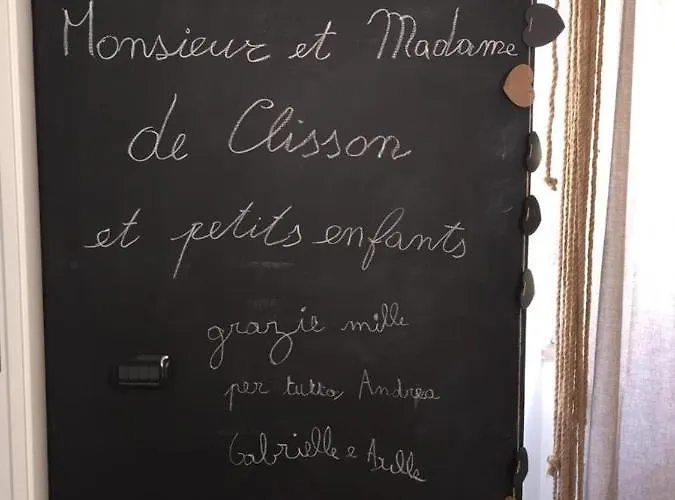 Monsieur et Madame
de Clisson
et petits enfants
grazie mille
per tutto Andrea
Gabrielle e